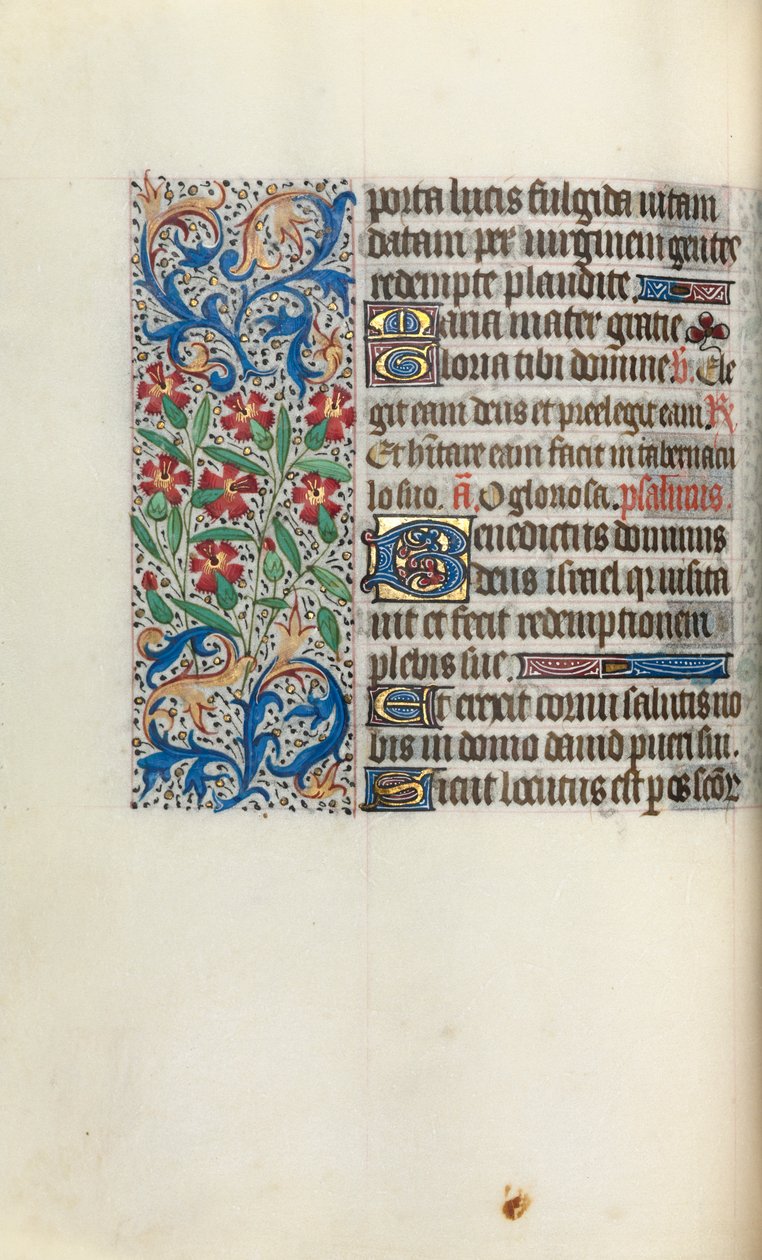 porta lucis fulgida uitam
datam per uirginem gentes
redempte plaudite.
Maria mater gratie
Gloria tibi domine. ℣. Ele
git eam deus et preelegit eam. ℟.
Et hītare eam facit in tabernacu
lo suo. Ā. O gloriosa. psalmus.
Benedictus dominus
deus israel qr uisita
uit et fecit redemptionem
plebis sue.
Et erexit cornu salutis no
bis in domo dauid pueri sui.
Sicut locutus est p os scōꝝ